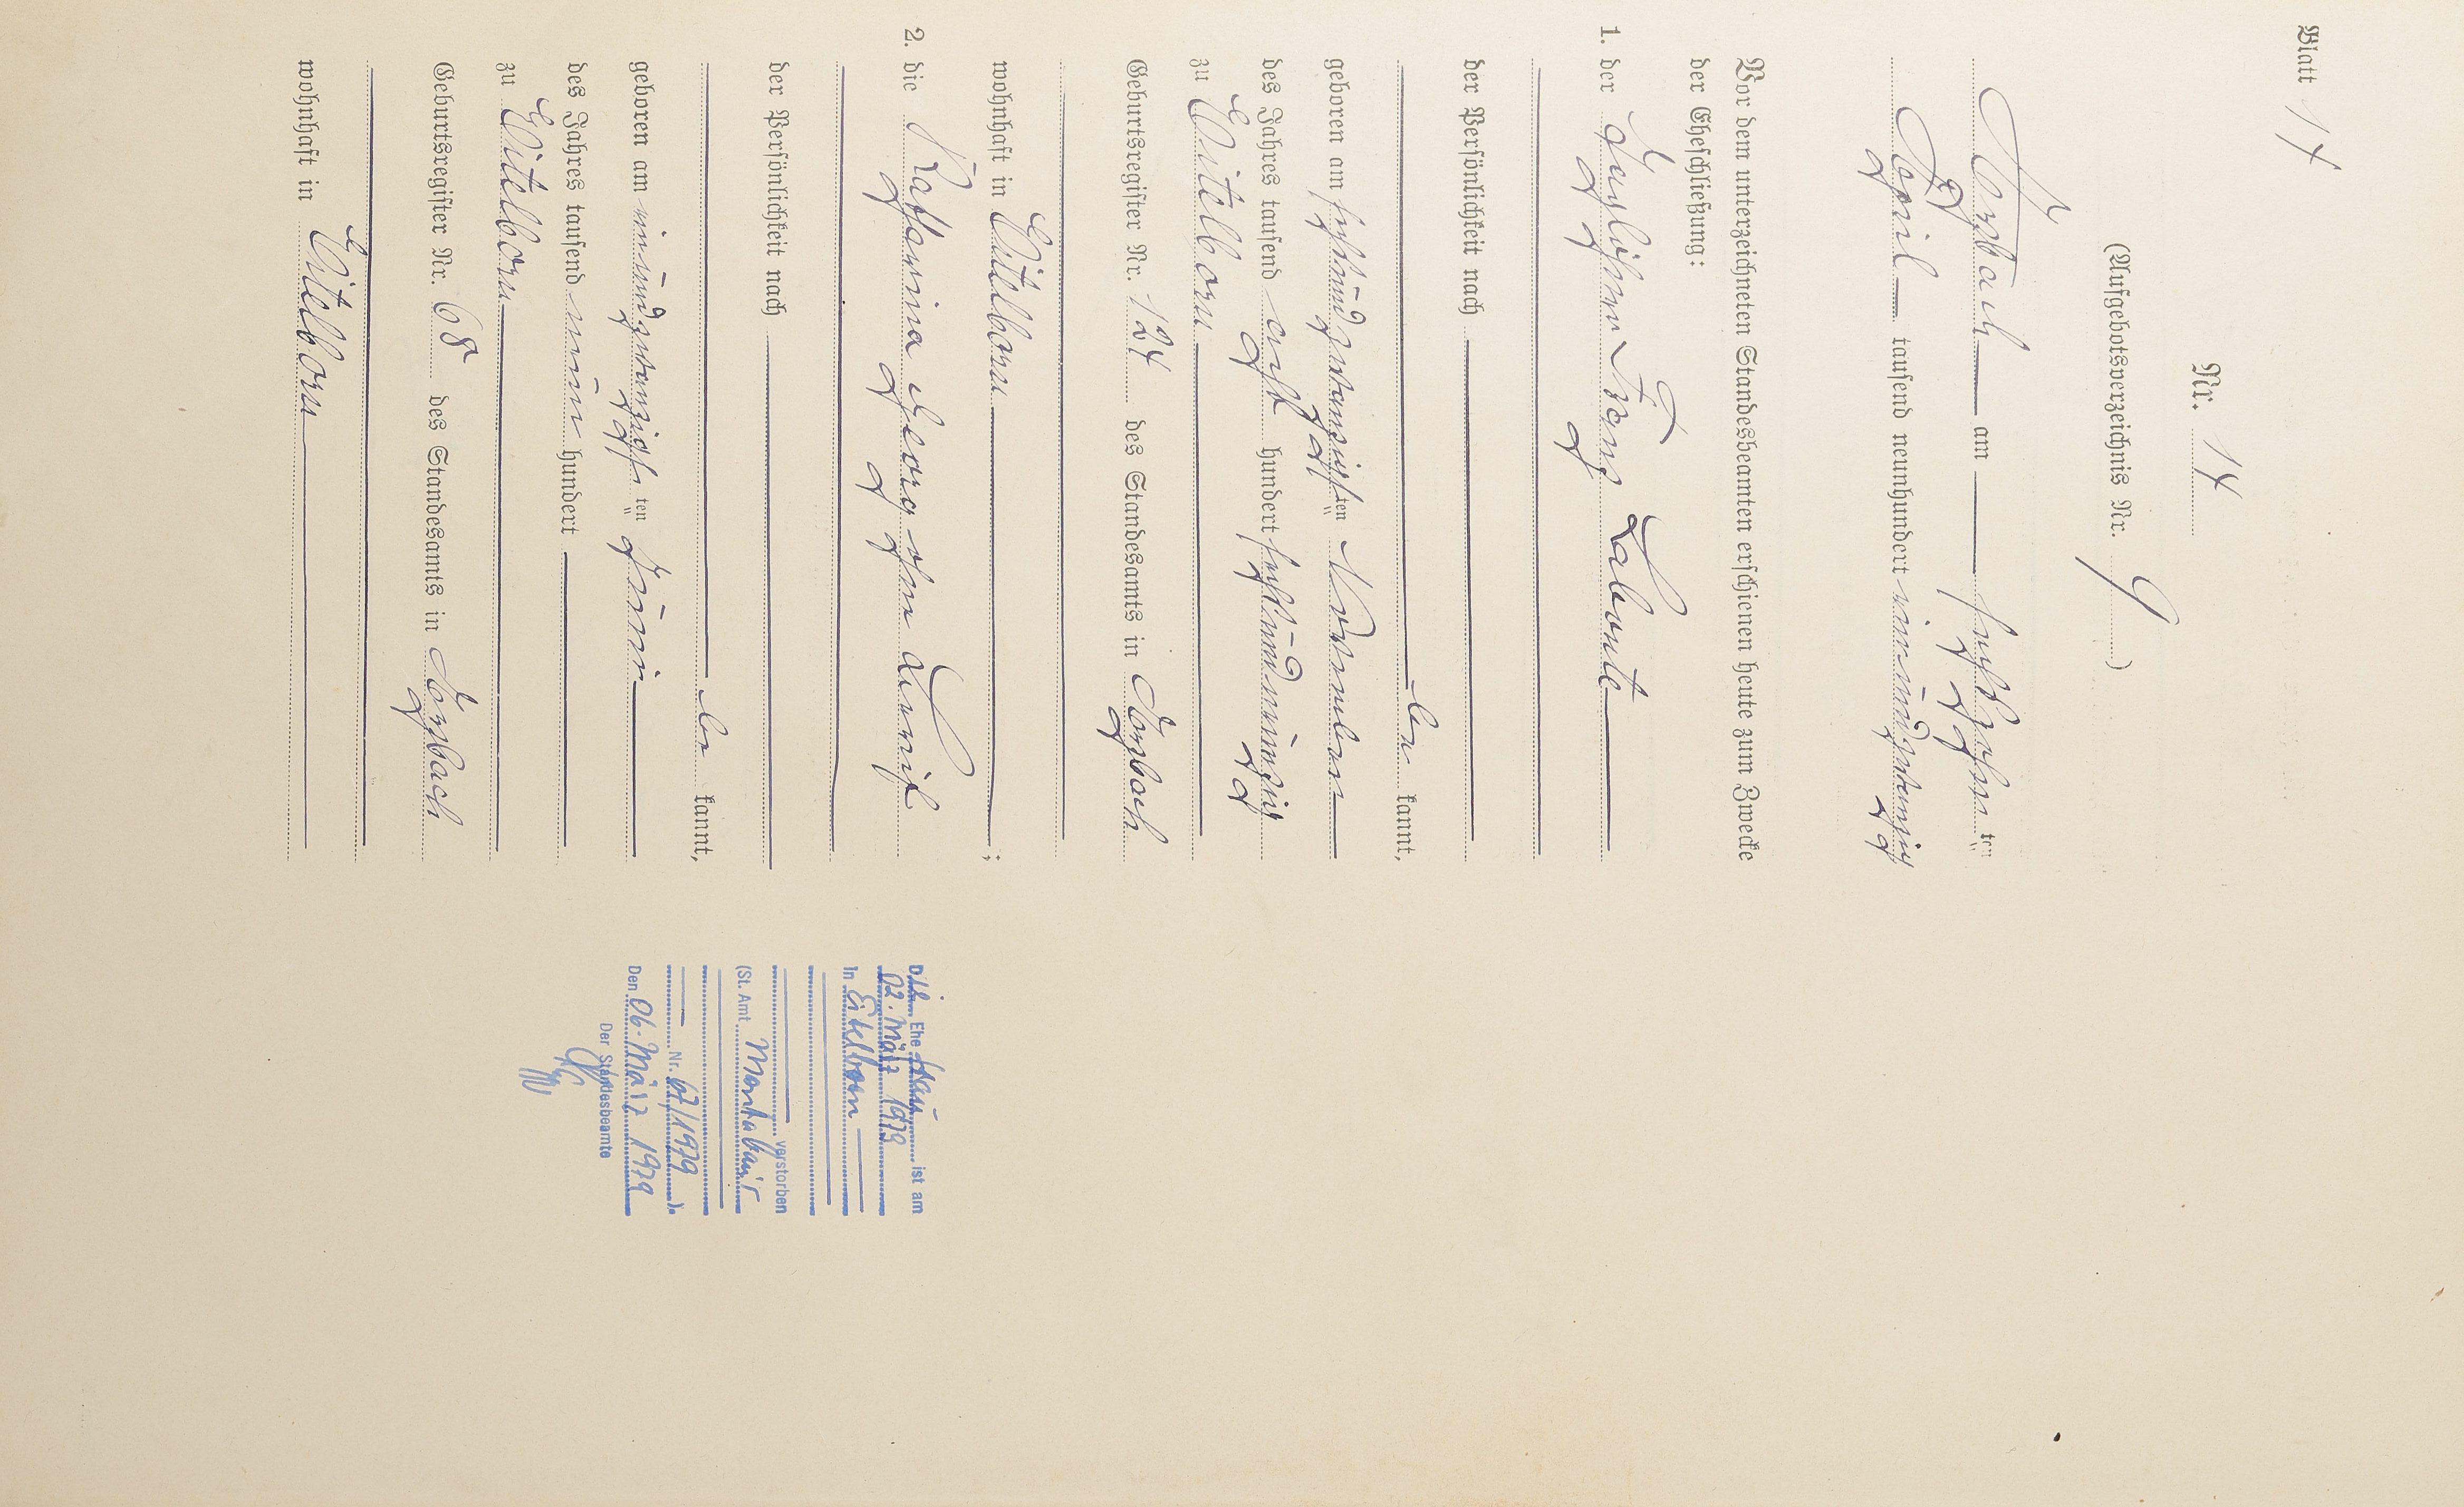 Blatt 14
Nr. 14
(Aufgebotsverzeichnis Nr. 9)
Arzbach am sechszehn ten
April tausend neunhundert einundzwanzig
Vor dem unterzeichneten Standesbeamten erschienen heute zum Zwecke
der Eheschließung:
1. der Taglöhner Franz Labonte
der Persönlichkeit nach
be kannt,
geboren am sechsundzwanzigsten November
des Jahres tausend acht hundert sechsundneunzig
zu Eitelborn
Geburtsregister Nr. 124 des Standesamts in Arzbach
wohnhaft in Eitelborn ;
2. die Katharina Georg ohne Beruf
der Persönlichkeit nach
be kannt,
geboren am einundzwanzigsten Juni
des Jahres tausend neun hundert
zu Eitelborn
Geburtsregister Nr. 68 des Standesamts in Arzbach
wohnhaft in Eitelborn
Die Ehefrau ist am
02. März 1979
In Eitelborn
verstorben
(St. Amt Montabaur
Nr. 67/1979).
Den 06. März 1979
Der Standesbeamte